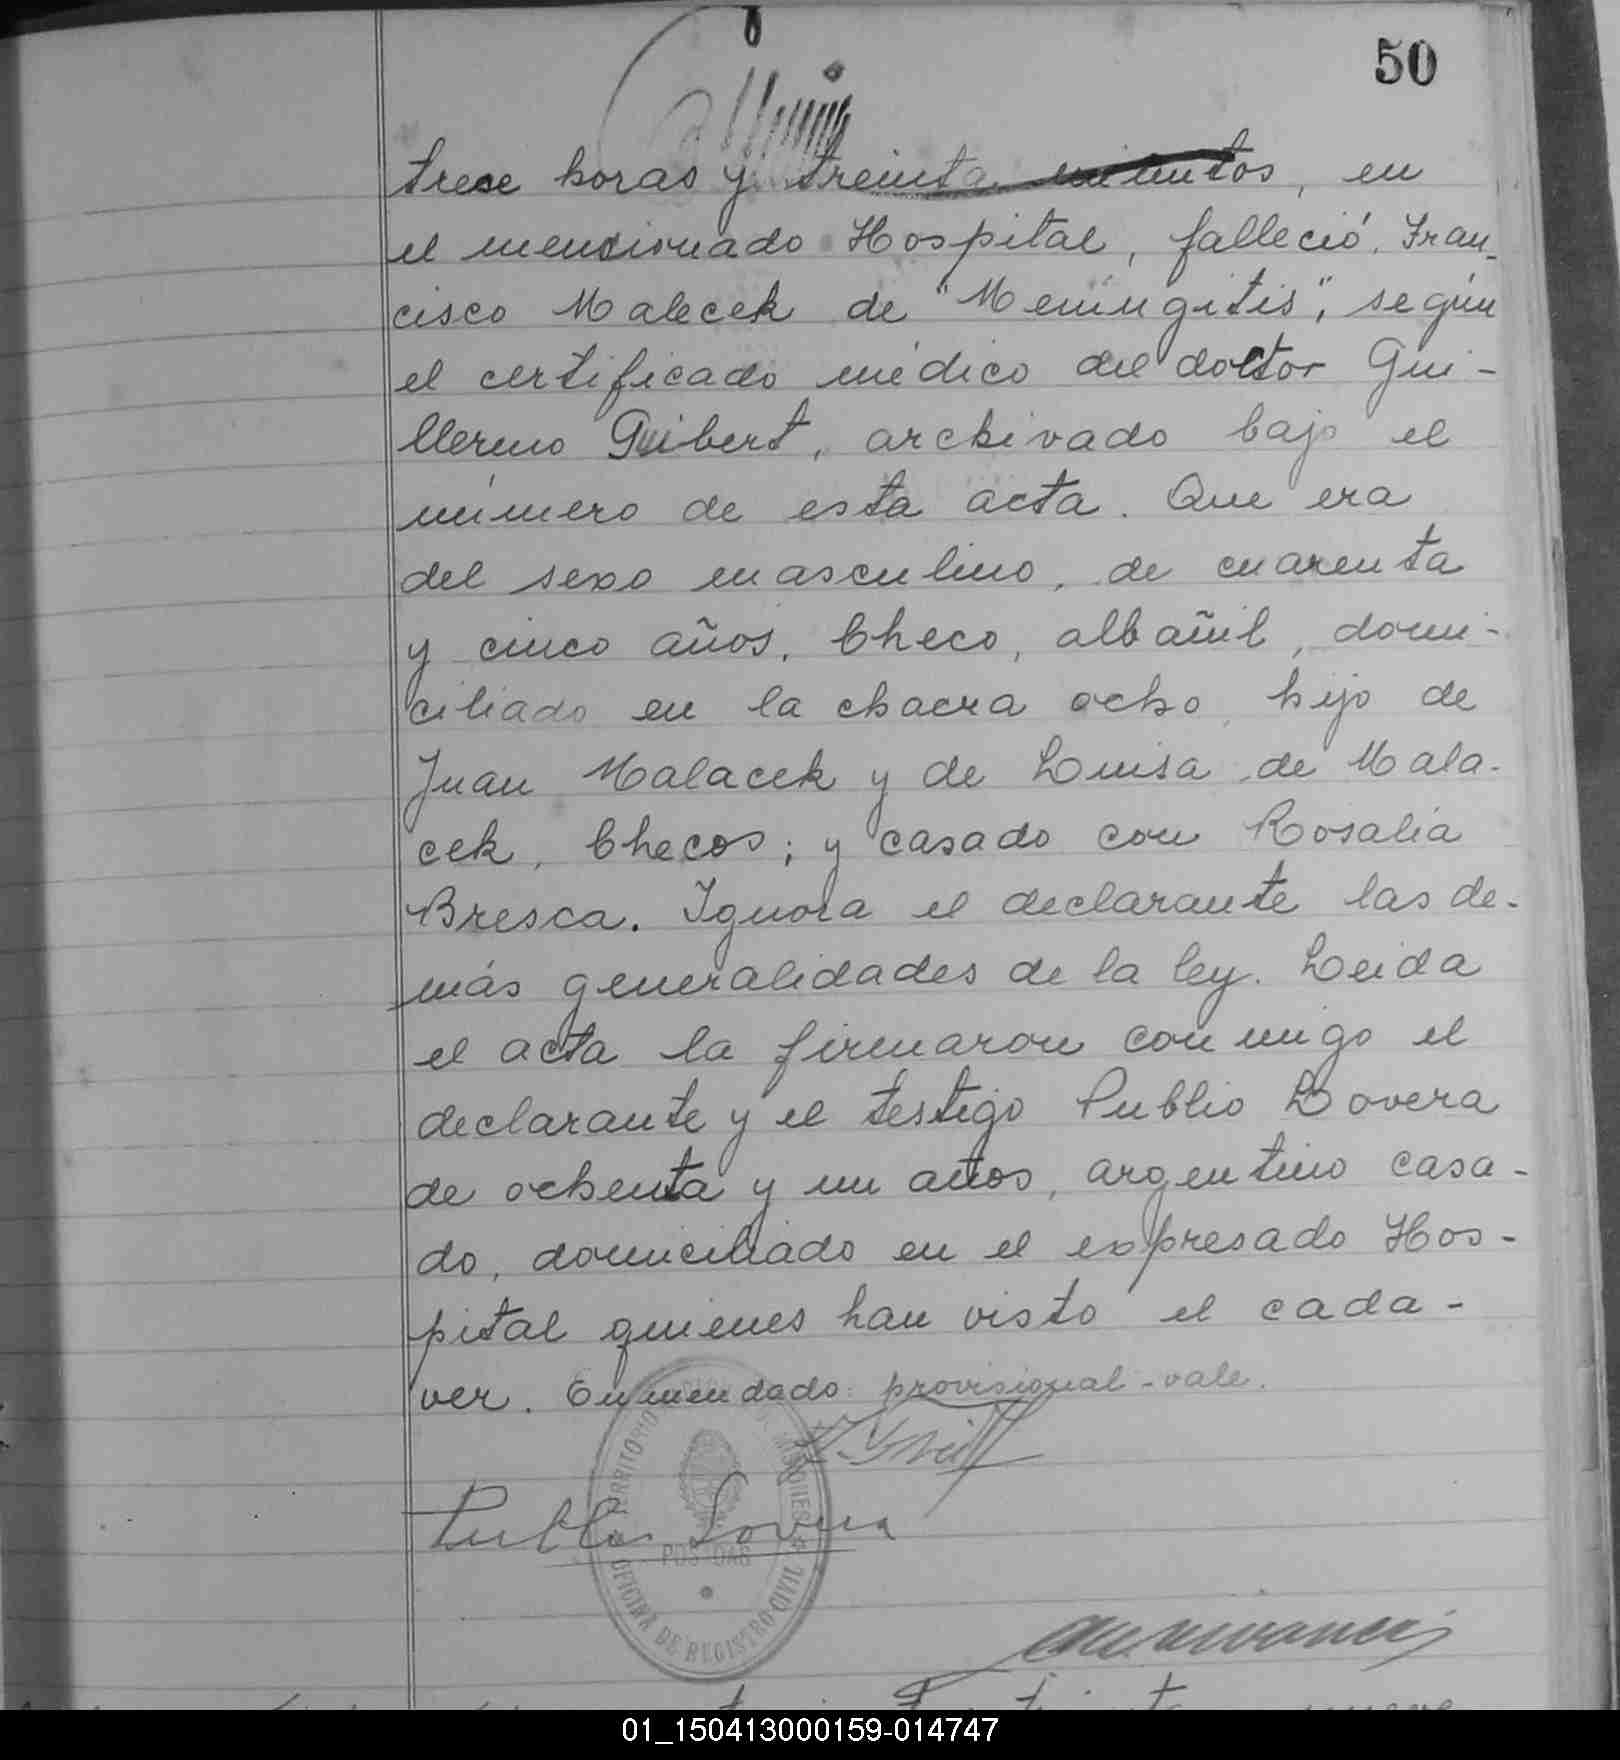 50
trece horas y treinta minutos, en
el mencionado Hospital, falleció, Fran-
cisco Malecek de "Meningitis", según
el certificado médico del doctor Gui-
llermo Guibert, archivado bajo el
número de esta acta. Que era
del sexo masculino, de cuarenta
y cinco años, Checo, albañil, domi-
ciliado en la chacra ocho, hijo de
Juan Malacek y de Luisa de Mala-
cek, Checos; y casado con Rosalia
Bresca. Ignora el declarante las de-
más generalidades de la ley. Leida
el acta la firmaron conmigo el
declarante y el testigo Publio Lovera
de ochenta y un años, argentino casa-
do, domiciliado en el expresado Hos-
pital quienes han visto el cada-
ver. Enmendado: provisional-vale.
Publio Lovera
TERRITORIO DE MISIONES
POSADAS
OFICINA DE REGISTRO CIVIL
01_150413000159-014747